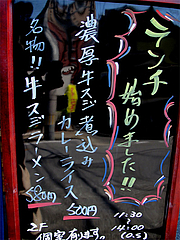 ランチ
始めました!!
濃厚牛スジ煮込み
カレーライス
500円
名物!!
牛スジラーメン
580円
11:30
~
14:00
(O.S)
2F
個室有ります。